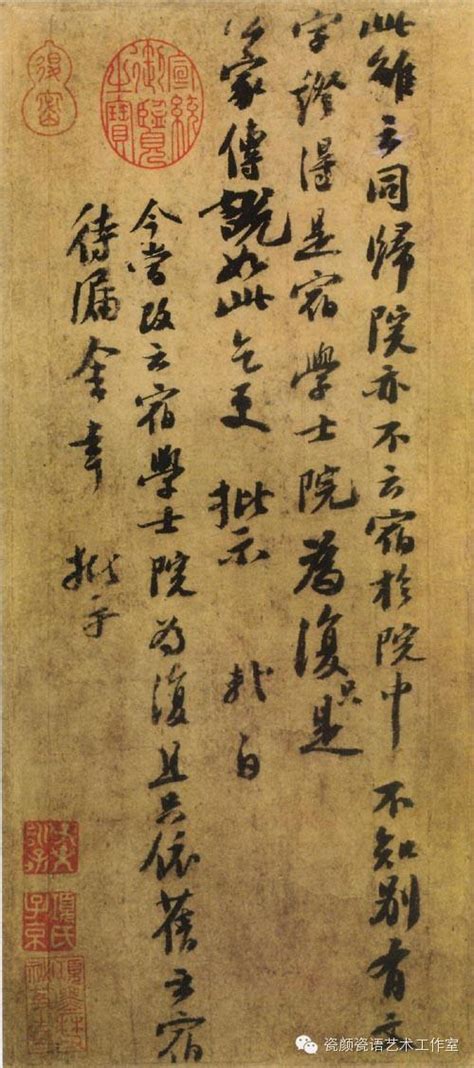 此雖云同歸院亦不云宿於院中不知別有文
字證得是宿學士院為復只是
公家傳說如此乞更 批示 軾白
今當改云宿學士院為復且只依舊云宿
待漏舍幸 批示
宣統御覽之寶
瓷颜瓷语艺术工作室